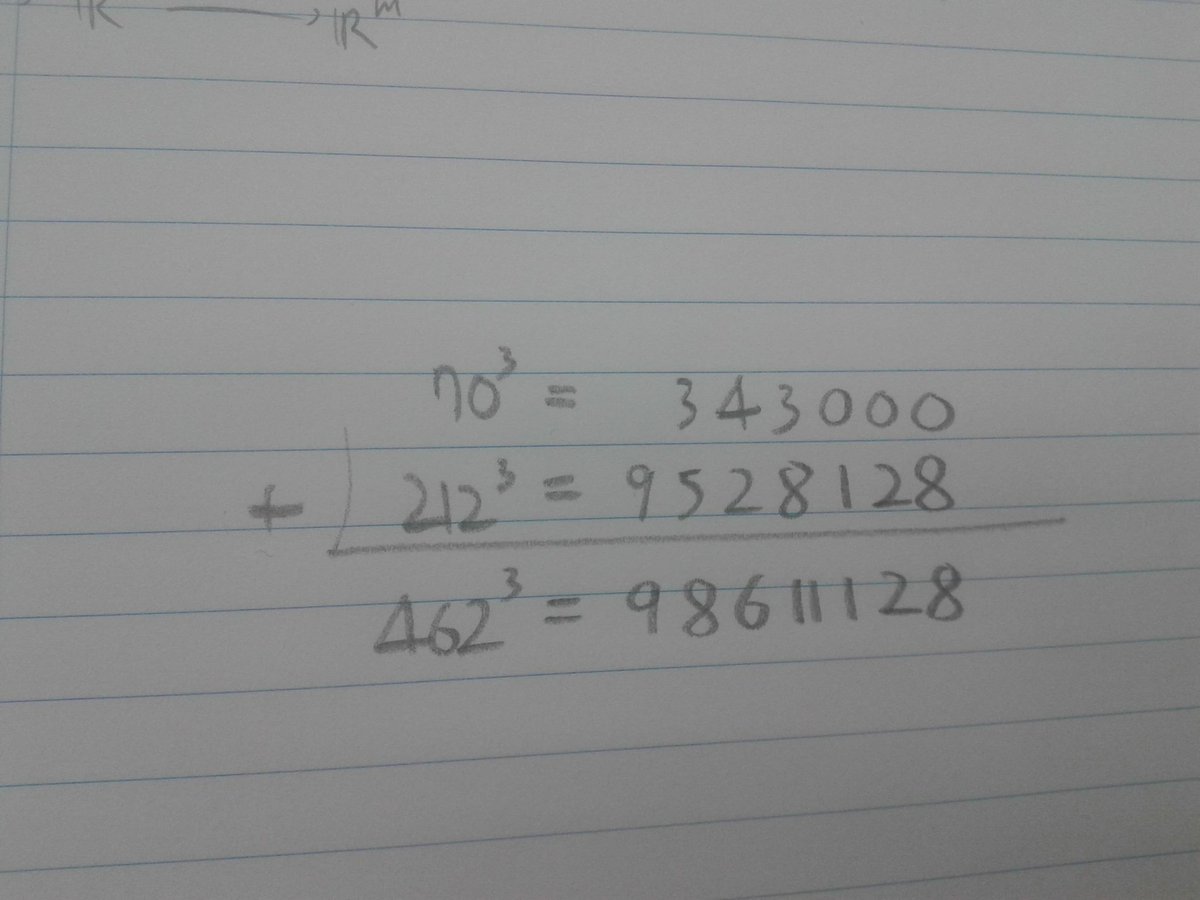 ℝ ⟶ ℝᵐ
70³ = 343000
+ 212³ = 9528128
462³ = 98611128